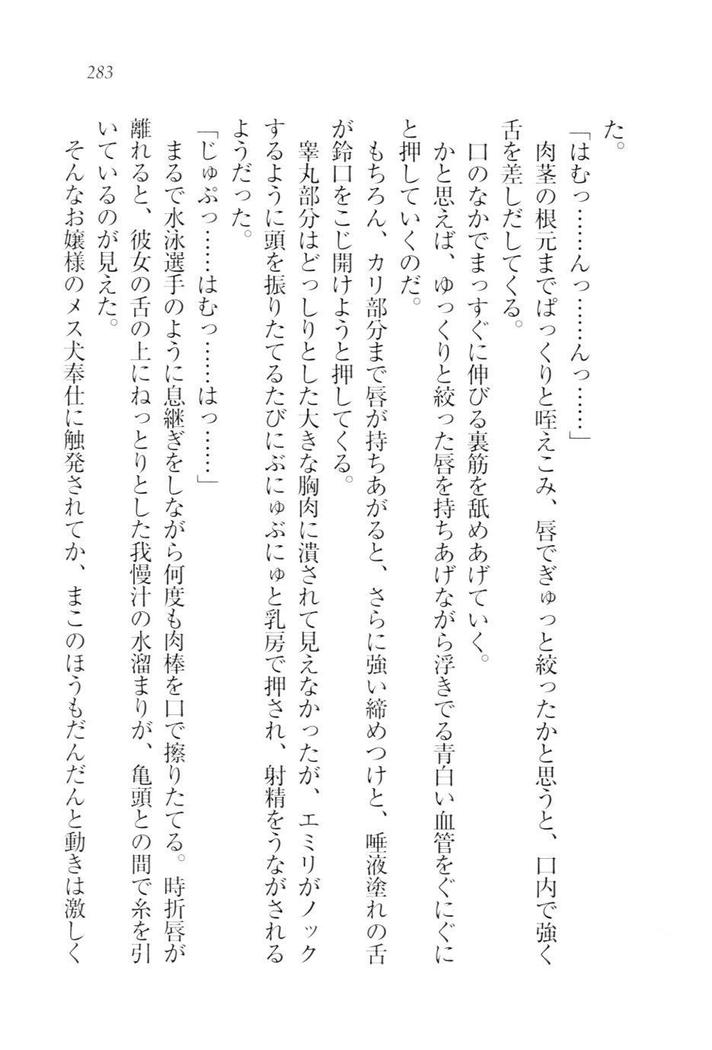 283
た。
「はむっ……んっ……んっ……」
肉茎の根元までぱっくりと咥えこみ、唇でぎゅっと絞ったかと思うと、口内で強く
舌を差しだしてくる。
口のなかでまっすぐに伸びる裏筋を舐めあげていく。
かと思えば、ゆっくりと絞った唇を持ちあげながら浮きでる青白い血管をぐにぐに
と押していくのだ。
もちろん、カリ部分まで唇が持ちあがると、さらに強い締めつけと、唾液塗れの舌
が鈴口をこじ開けようと押してくる。
睾丸部分はどっしりとした大きな胸肉に潰されて見えなかったが、エミリがノック
するように頭を振りたてるたびにぶにゅぶにゅと乳房で押され、射精をうながされる
ようだった。
「じゅぷっ……はむっ……はっ……」
まるで水泳選手のように息継ぎをしながら何度も肉棒を口で擦りたてる。時折唇が
離れると、彼女の舌の上にねっとりとした我慢汁の水溜まりが、亀頭との間で糸を引
いているのが見えた。
そんなお嬢様のメス犬奉仕に触発されてか、まこのほうもだんだんと動きは激しく